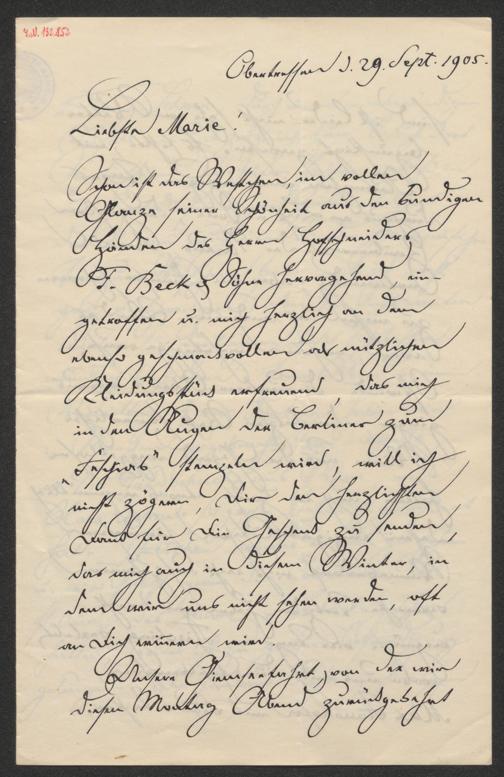 I.N. 132.852
Obertressen d. 29. Sept. 1905.
Liebste Marie!
Schon ist das Westchen, im vollen
Glanze seiner Schönheit aus den kundigen
Händen des Herrn Hofschneiders
F. Beck & Söhne hervorgehend, ein-
getroffen u. mich herzlich an dem
ebenso geschmackvollen als nützlichen
Kleidungsstück erfreuend, das mich
in den Augen der Berliner zum
"Feschak" stempeln wird, will ich
nicht zögern, Dir den herzlichsten
Dank für Dein Geschenk zu senden,
das mich auch in diesem Winter, in
dem wir uns nicht sehen werden, oft
an Dich erinnern wird.
Unsere Chiemseefahrt, von der wir
diesen Montag Abend zurückgekehrt